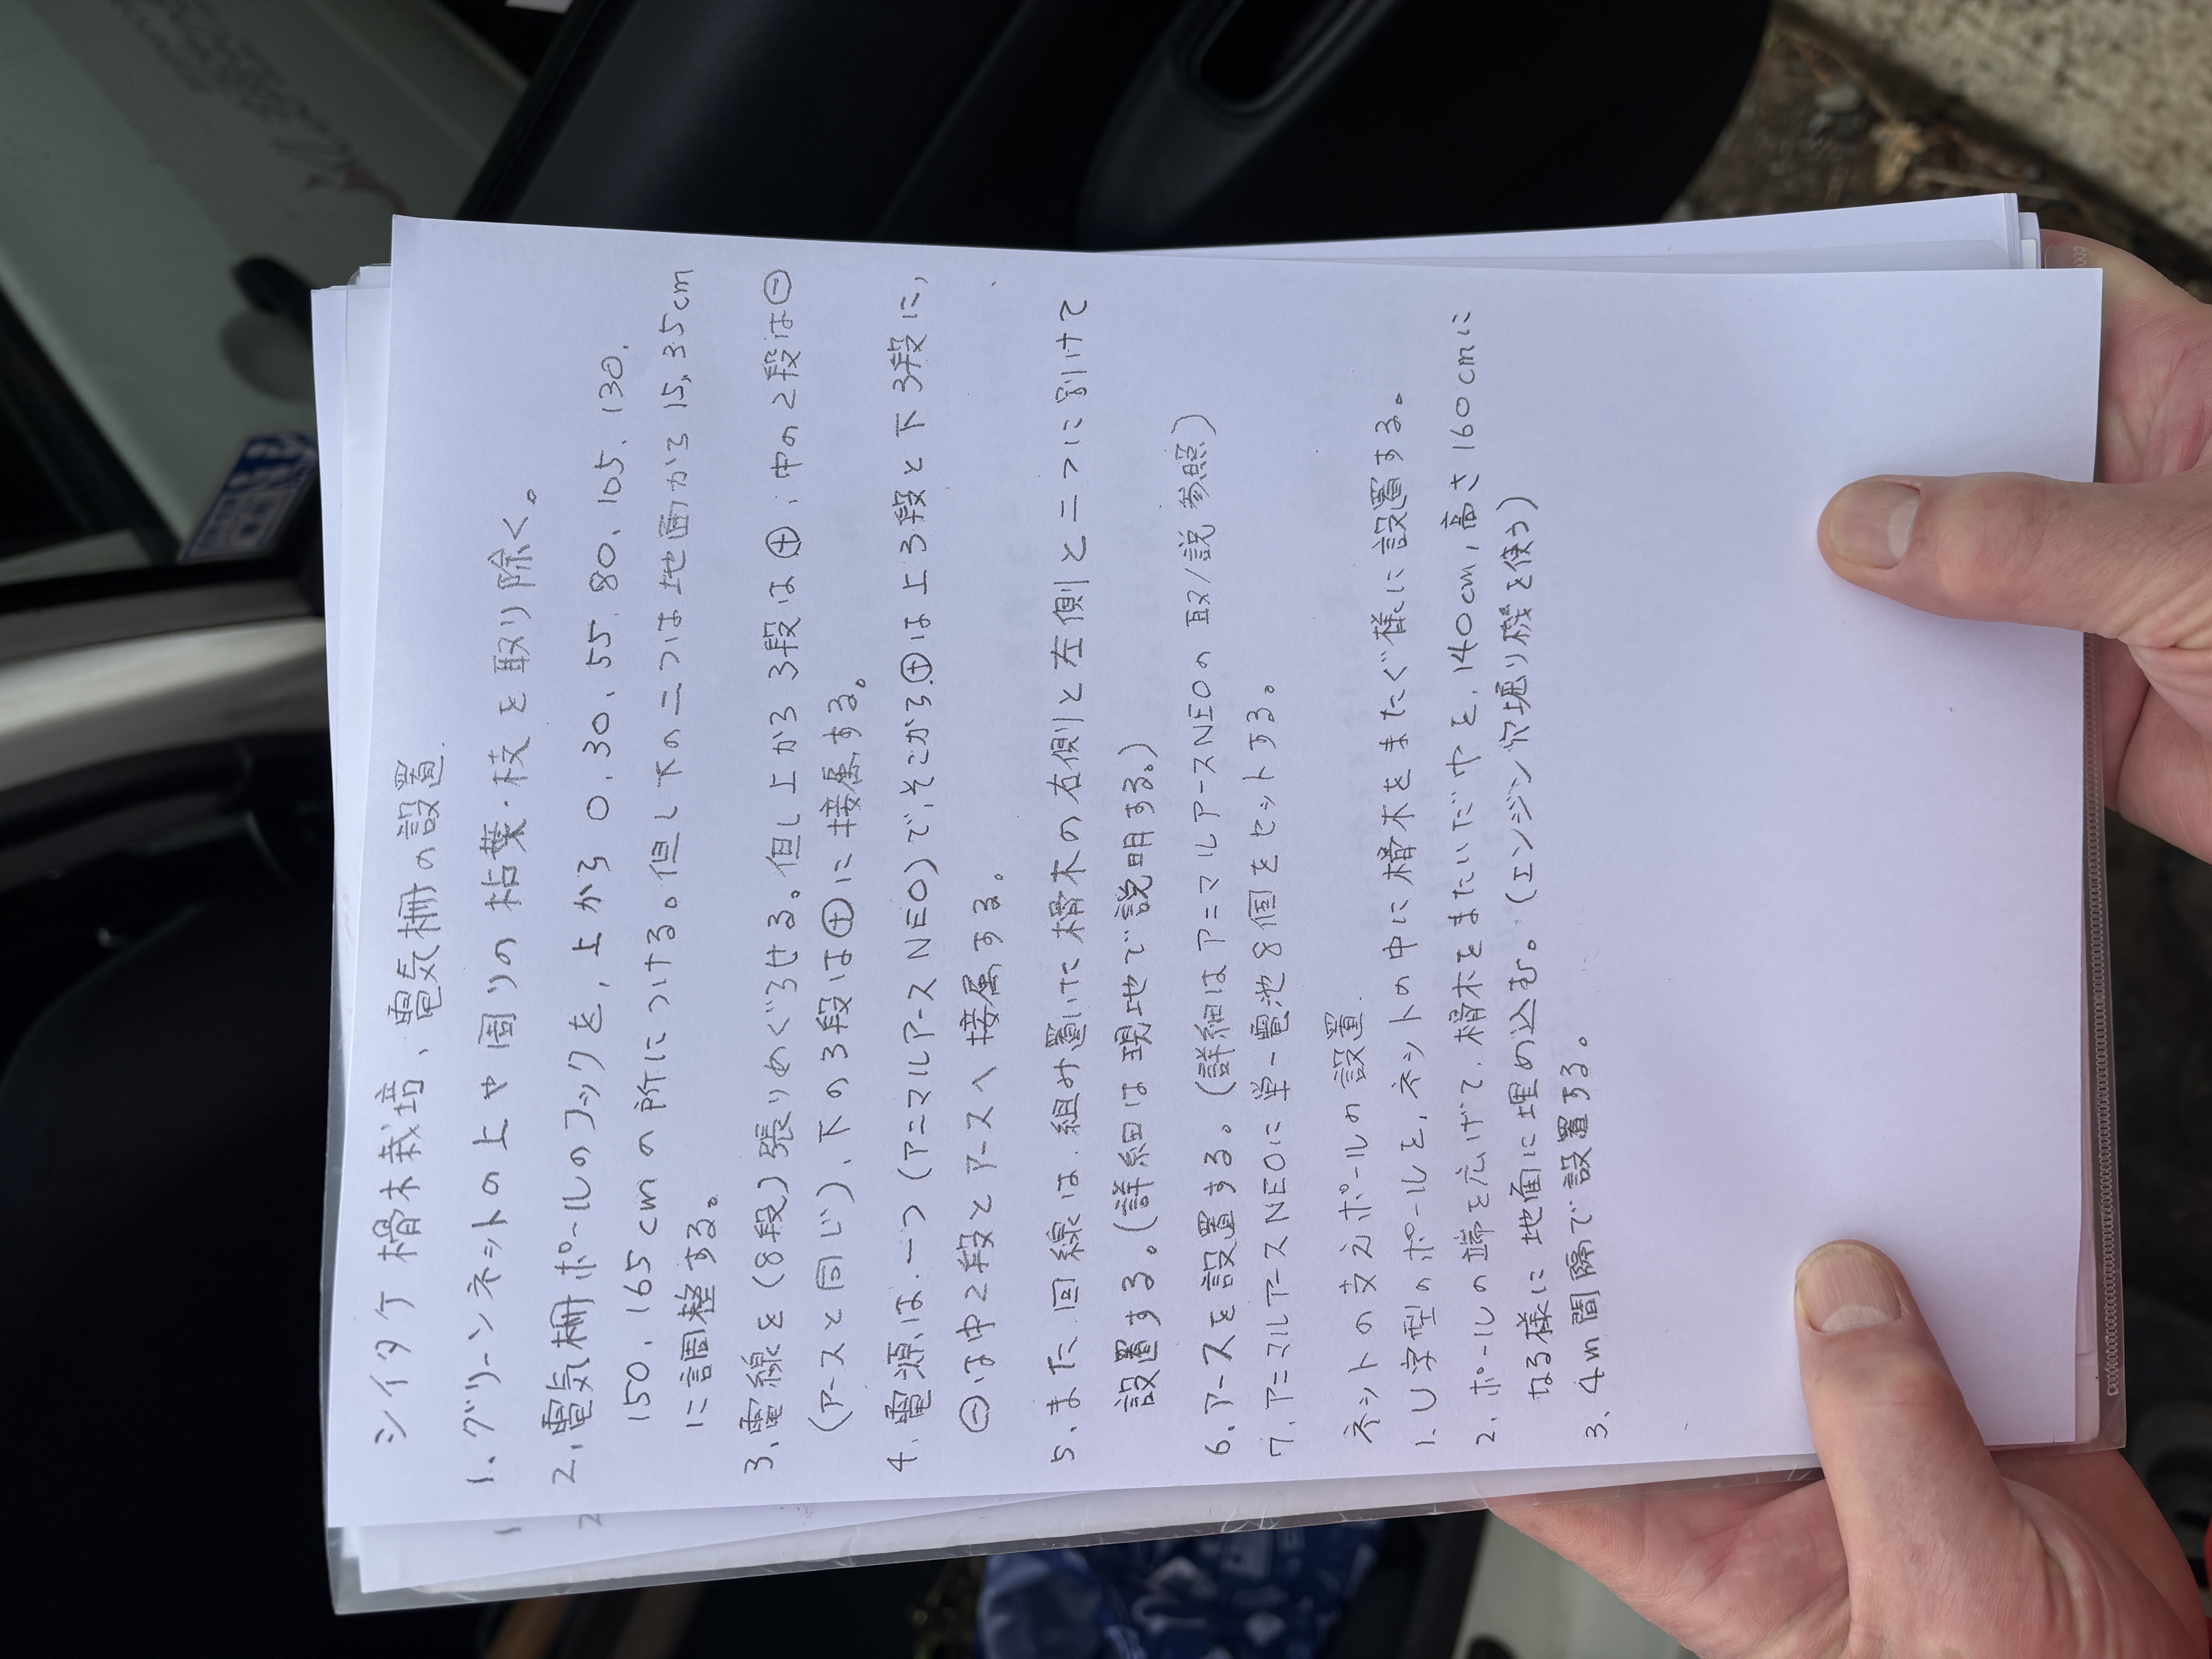 シイタケ榾木栽培、電気柵の設置.
1、グリーンネットの上や周りの枯葉・枝を取り除く。
2、電気柵ポールのフックを,上から0、30、55、80、105、130、
150、165cmの所につける。但し下の二つは地面から15,35cm
に調整する。
3、電線を(8段)張りめぐらせる。但し上から3段は⊕、中の2段は⊖
(アースと同じ)、下の3段は⊕に接属する。
4、電源は、一つ(アニマルアースNEO)で、そこから⊕は上3段と下3段に、
⊖は中2段とアースへ接属する。
5、また、回線は、組み置いた榾木の右側と左側と二つに別けて
設置する。(詳細は現地で説明する。)
6、アースを設置する。(詳細はアニマルアースNEOの取/説参照)
7、アニマルアースNEOに単一電池8個をセットする。
ネットの支えポールの設置.
1、U字型のポールを、ネットの中に榾木をまたぐ様に設置する。
2、ポールの端を広げて、榾木をまたいだ巾を、140cm,高さ160cmに
なる様に地面に埋め込む。(エンジン穴堀り機を使う)
3、4m間隔で設置する。